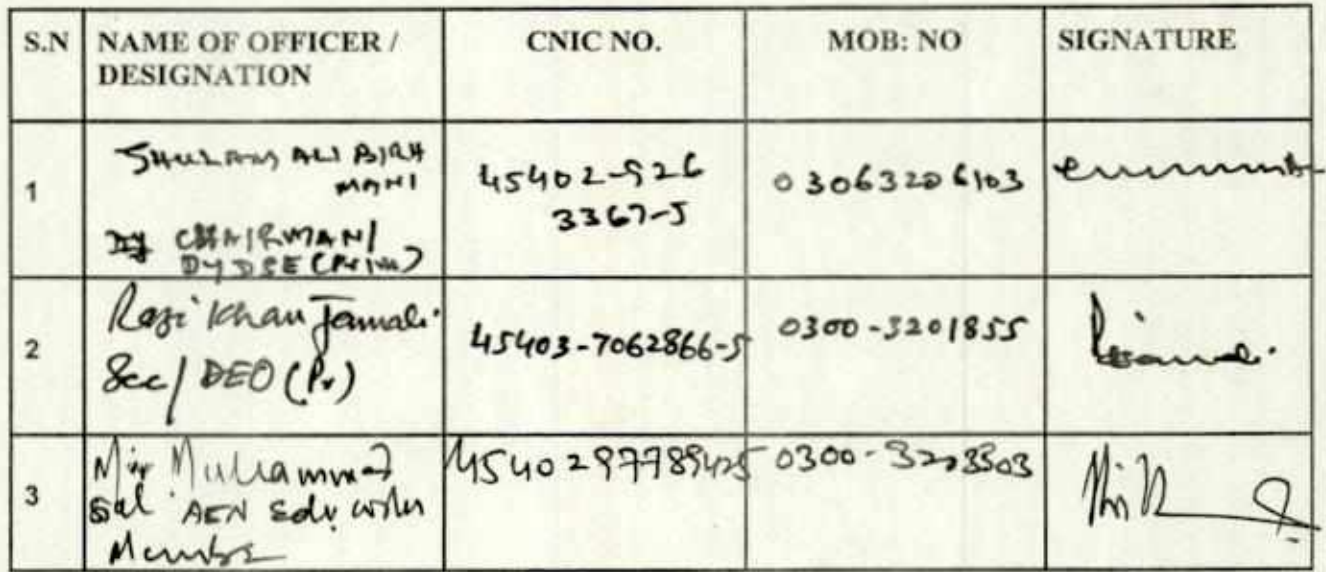 S.N NAME OF OFFICER / DESIGNATION CNIC NO. MOB: NO SIGNATURE
1
GHULAM ALI BIRH
MANI
Dy CHAIRMAN/
DY DSE (Prim)
45402-926
3367-5
03063206103
2
Razi Khan Jamali
Sec/ DEO (Pr)
45403-7062866-5
0300-3201855
3
Mir Muhammad
AEN Edu works
Member
0300-3203303